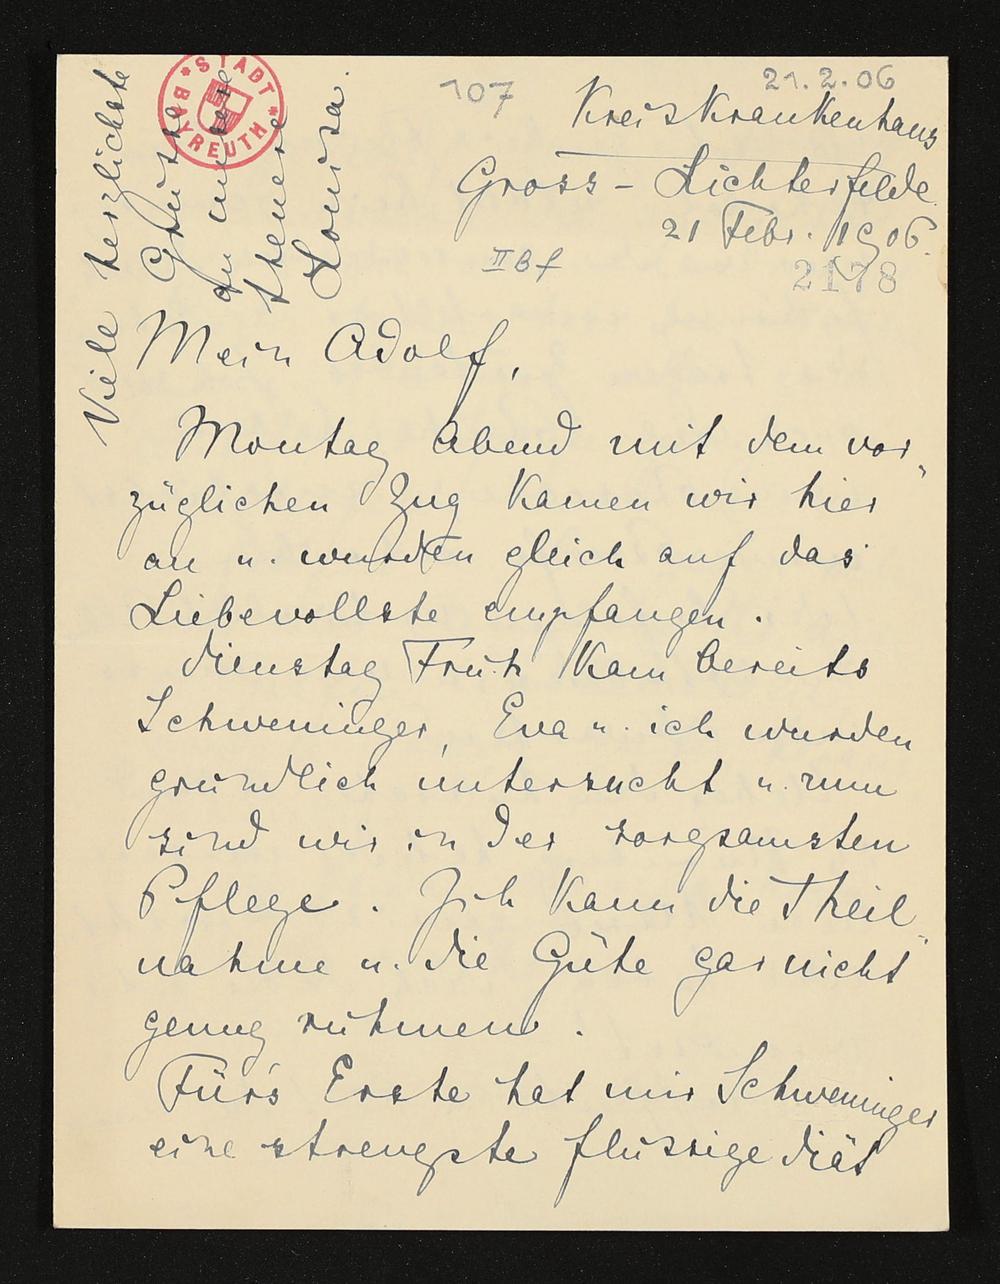 107
21.2.06
STADT
BAYREUTH
KreisKrankenhaus
Gross-Lichterfelde.
21 Febr. 1906.
II B f
2178
Mein Adolf,
Montag Abend mit dem vor"
züglichen Zug Kamen wir hier
an u. wurden gleich auf das
Liebevollste empfangen.
Dienstag Früh Kam bereits
Schweninger, Eva u. ich wurden
gründlich untersucht u. nun
sind wir in der sorgsamsten
Pflege. Ich Kann die Theil"
nahme u. die Güte gar nicht
genug rühmen.
Für's Erste hat mir Schweninger
eine strengste flüssige Diät
Viele herzlichste
Grüsse
an unsere
theuere
Louisa.